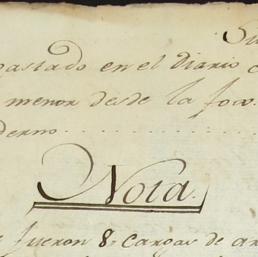 Su
gastado en el diario c
menor desde la foxa.
derno
Nota.
e fueron 8. cargas de ar